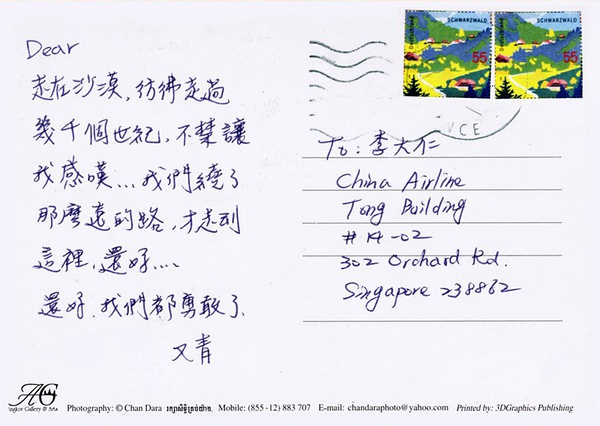 Dear
走在沙漠，彷彿走過
幾千個世紀，不禁讓
我感嘆...我們繞了
那麼遠的路，才走到
這裡，還好....
還好，我們都勇敢了、
又青
SCHWARZWALD
55
SCHWARZWALD
55
VCE
To: 李大仁
China Airline
Tong Building
#14-02
302 Orchard Rd.
Singapore 238862
AG
Angkor Gallery & Arts
Photography: © Chan Dara រក្សាសិទ្ធិគ្រប់យ៉ាង. Mobile: (855-12) 883 707 E-mail: chandaraphoto@yahoo.com Printed by: 3DGraphics Publishing